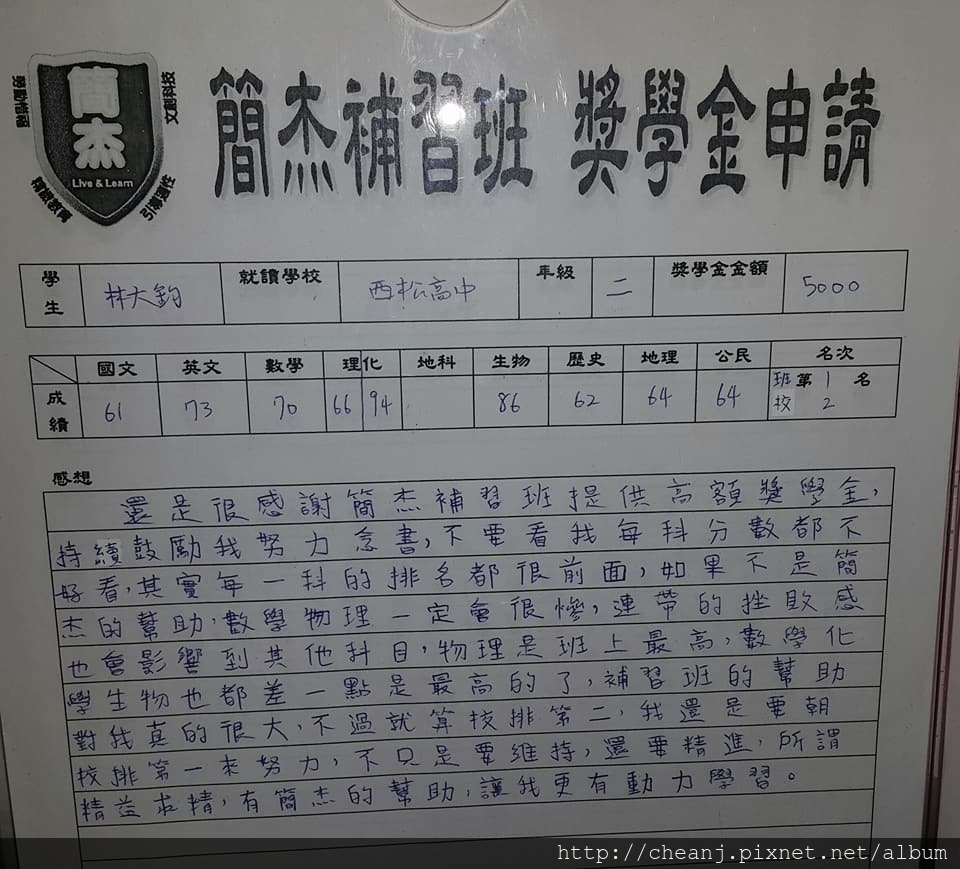 簡杰
Live & Learn
文創科技
引導適性
簡杰補習班 獎學金申請
學生 林大鈞 就讀學校 西松高中 年級 二 獎學金金額 5000
國文 英文 數學 理化 地科 生物 歷史 地理 公民 名次
成績 61 73 70 66 94 86 62 64 64 班校 第 1 2 名
感想
還是很感謝簡杰補習班提供高額獎學金,
持續鼓勵我努力念書,不要看我每科分數都不
好看,其實每一科的排名都很前面,如果不是簡
杰的幫助,數學物理一定會很慘,連帶的挫敗感
也會影響到其他科目,物理是班上最高,數學化
學生物也都差一點是最高的了,補習班的幫助
對我真的很大,不過就算校排第二,我還是要朝
校排第一來努力,不只是要維持,還要精進,所謂
精益求精,有簡杰的幫助,讓我更有動力學習。
http://cheanj.pixnet.net/album